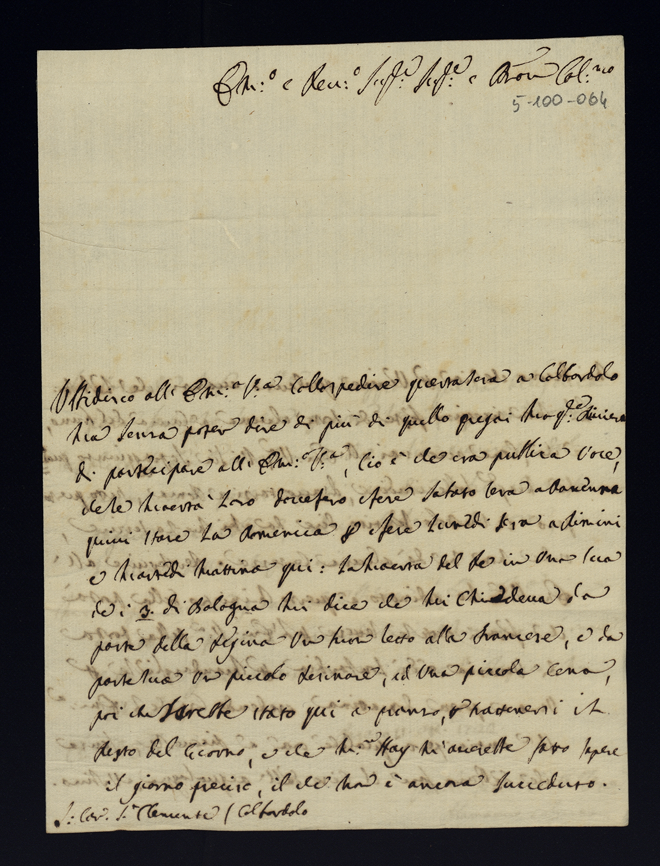 Em:o e Rev:o Sig:r Sig:r e Pron Col:mo
5-100-064
Ubbidisco all' Em:a V:a coll'ospedire questa sera a Colbordolo
ma senza poter dire di più di quello
di participare all' Em:a V:a, cioè che era publica voce,
che le Maestà Loro dovessero essere Sabato sera a
quivi stare la Domenica e essere Lunedì sera a Rimini
e Martedì mattina qui: la Maestà del Re in una sua
de i 3 di Bologna mi dice che mi chiedeva da
parte della Regina un buon letto alla francese, e da
parte sua un piccolo desinare, ed una piccola cena,
poi che sarebbe stato qui a pranzo, e trattenersi il
resto del Giorno, e che M:r Hay m'averebbe fatto sapere
il giorno preciso, il che non è ancora succeduto.
S: Car. S: Clemente / Colbordolo